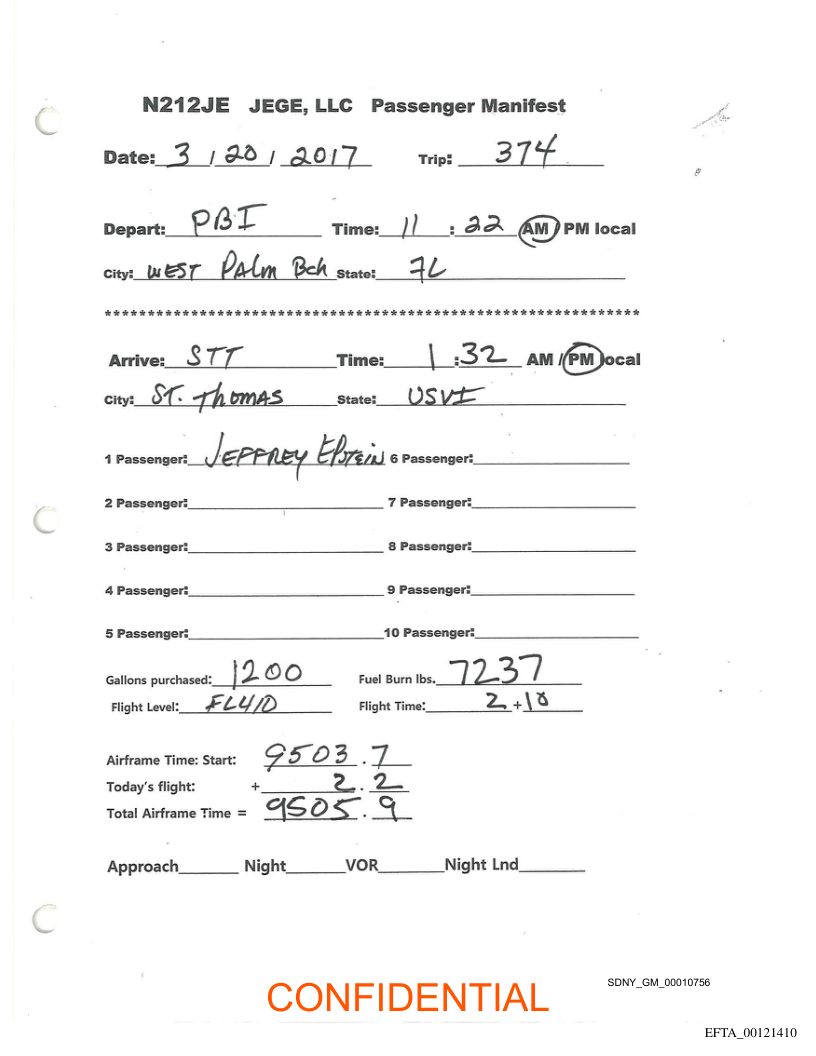 N212JE JEGE, LLC Passenger Manifest
Date: 3 / 20 / 2017 Trip: 374
Depart: PBI Time: 11 : 22 AM / PM local
City: WEST PALM BCH State: FL
****************************************************************
Arrive: STT Time: 1 : 32 AM / PM local
City: ST. THOMAS State: USVI
1 Passenger: JEFFREY EPSTEIN 6 Passenger:
2 Passenger: 7 Passenger:
3 Passenger: 8 Passenger:
4 Passenger: 9 Passenger:
5 Passenger: 10 Passenger:
Gallons purchased: 1200 Fuel Burn lbs. 7237
Flight Level: FL410 Flight Time: 2 + 10
Airframe Time: Start: 9503 . 7
Today's flight: + 2 . 2
Total Airframe Time = 9505 . 9
Approach Night VOR Night Lnd
SDNY_GM_00010756
CONFIDENTIAL
EFTA_00121410